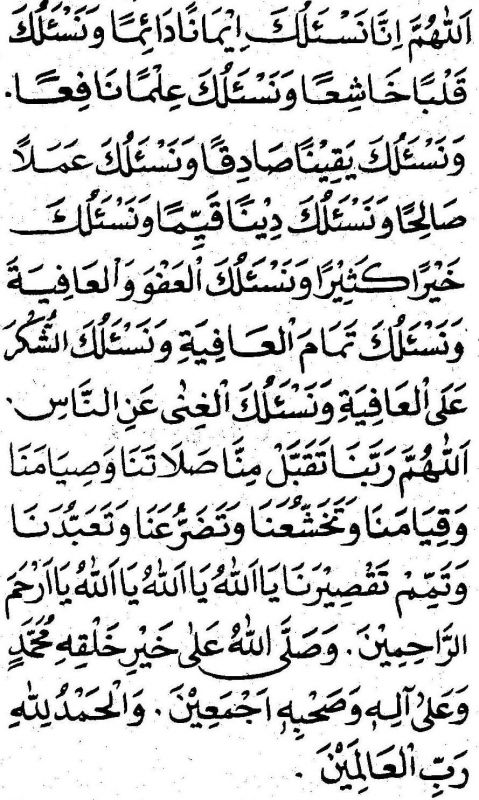 اَللّٰهُمَّ اِنَّا نَسْئَلُكَ اِيْمَانًا دَائِمًا وَنَسْئَلُكَ
قَلْبًا خَاشِعًا وَنَسْئَلُكَ عِلْمًا نَافِعًا.
وَنَسْئَلُكَ يَقِيْنًا صَادِقًا وَنَسْئَلُكَ عَمَلًا
صَالِحًا وَنَسْئَلُكَ دِيْنًا قَيِّمًا وَنَسْئَلُكَ
خَيْرًا كَثِيْرًا وَنَسْئَلُكَ الْعَفْوَ وَالْعَافِيَةَ
وَنَسْئَلُكَ تَمَامَ الْعَافِيَةِ وَنَسْئَلُكَ الشُّكْرَ
عَلَى الْعَافِيَةِ وَنَسْئَلُكَ الْغِنٰى عَنِ النَّاسِ.
اَللّٰهُمَّ رَبَّنَا تَقَبَّلْ مِنَّا صَلَاتَنَا وَصِيَامَنَا
وَقِيَامَنَا وَتَخَشُّعَنَا وَتَضَرُّعَنَا وَتَعَبُّدَنَا
وَتَمِّمْ تَقْصِيْرَنَا يَا اَللهُ يَا اَللهُ يَا اَللهُ يَا اَرْحَمَ
الرَّاحِمِيْنَ. وَصَلَّى اللهُ عَلٰى خَيْرِ خَلْقِهِ مُحَمَّدٍ
وَعَلٰى آلِهِ وَصَحْبِهِ اَجْمَعِيْنَ. وَالْحَمْدُ لِلّٰهِ
رَبِّ الْعَالَمِيْنَ.